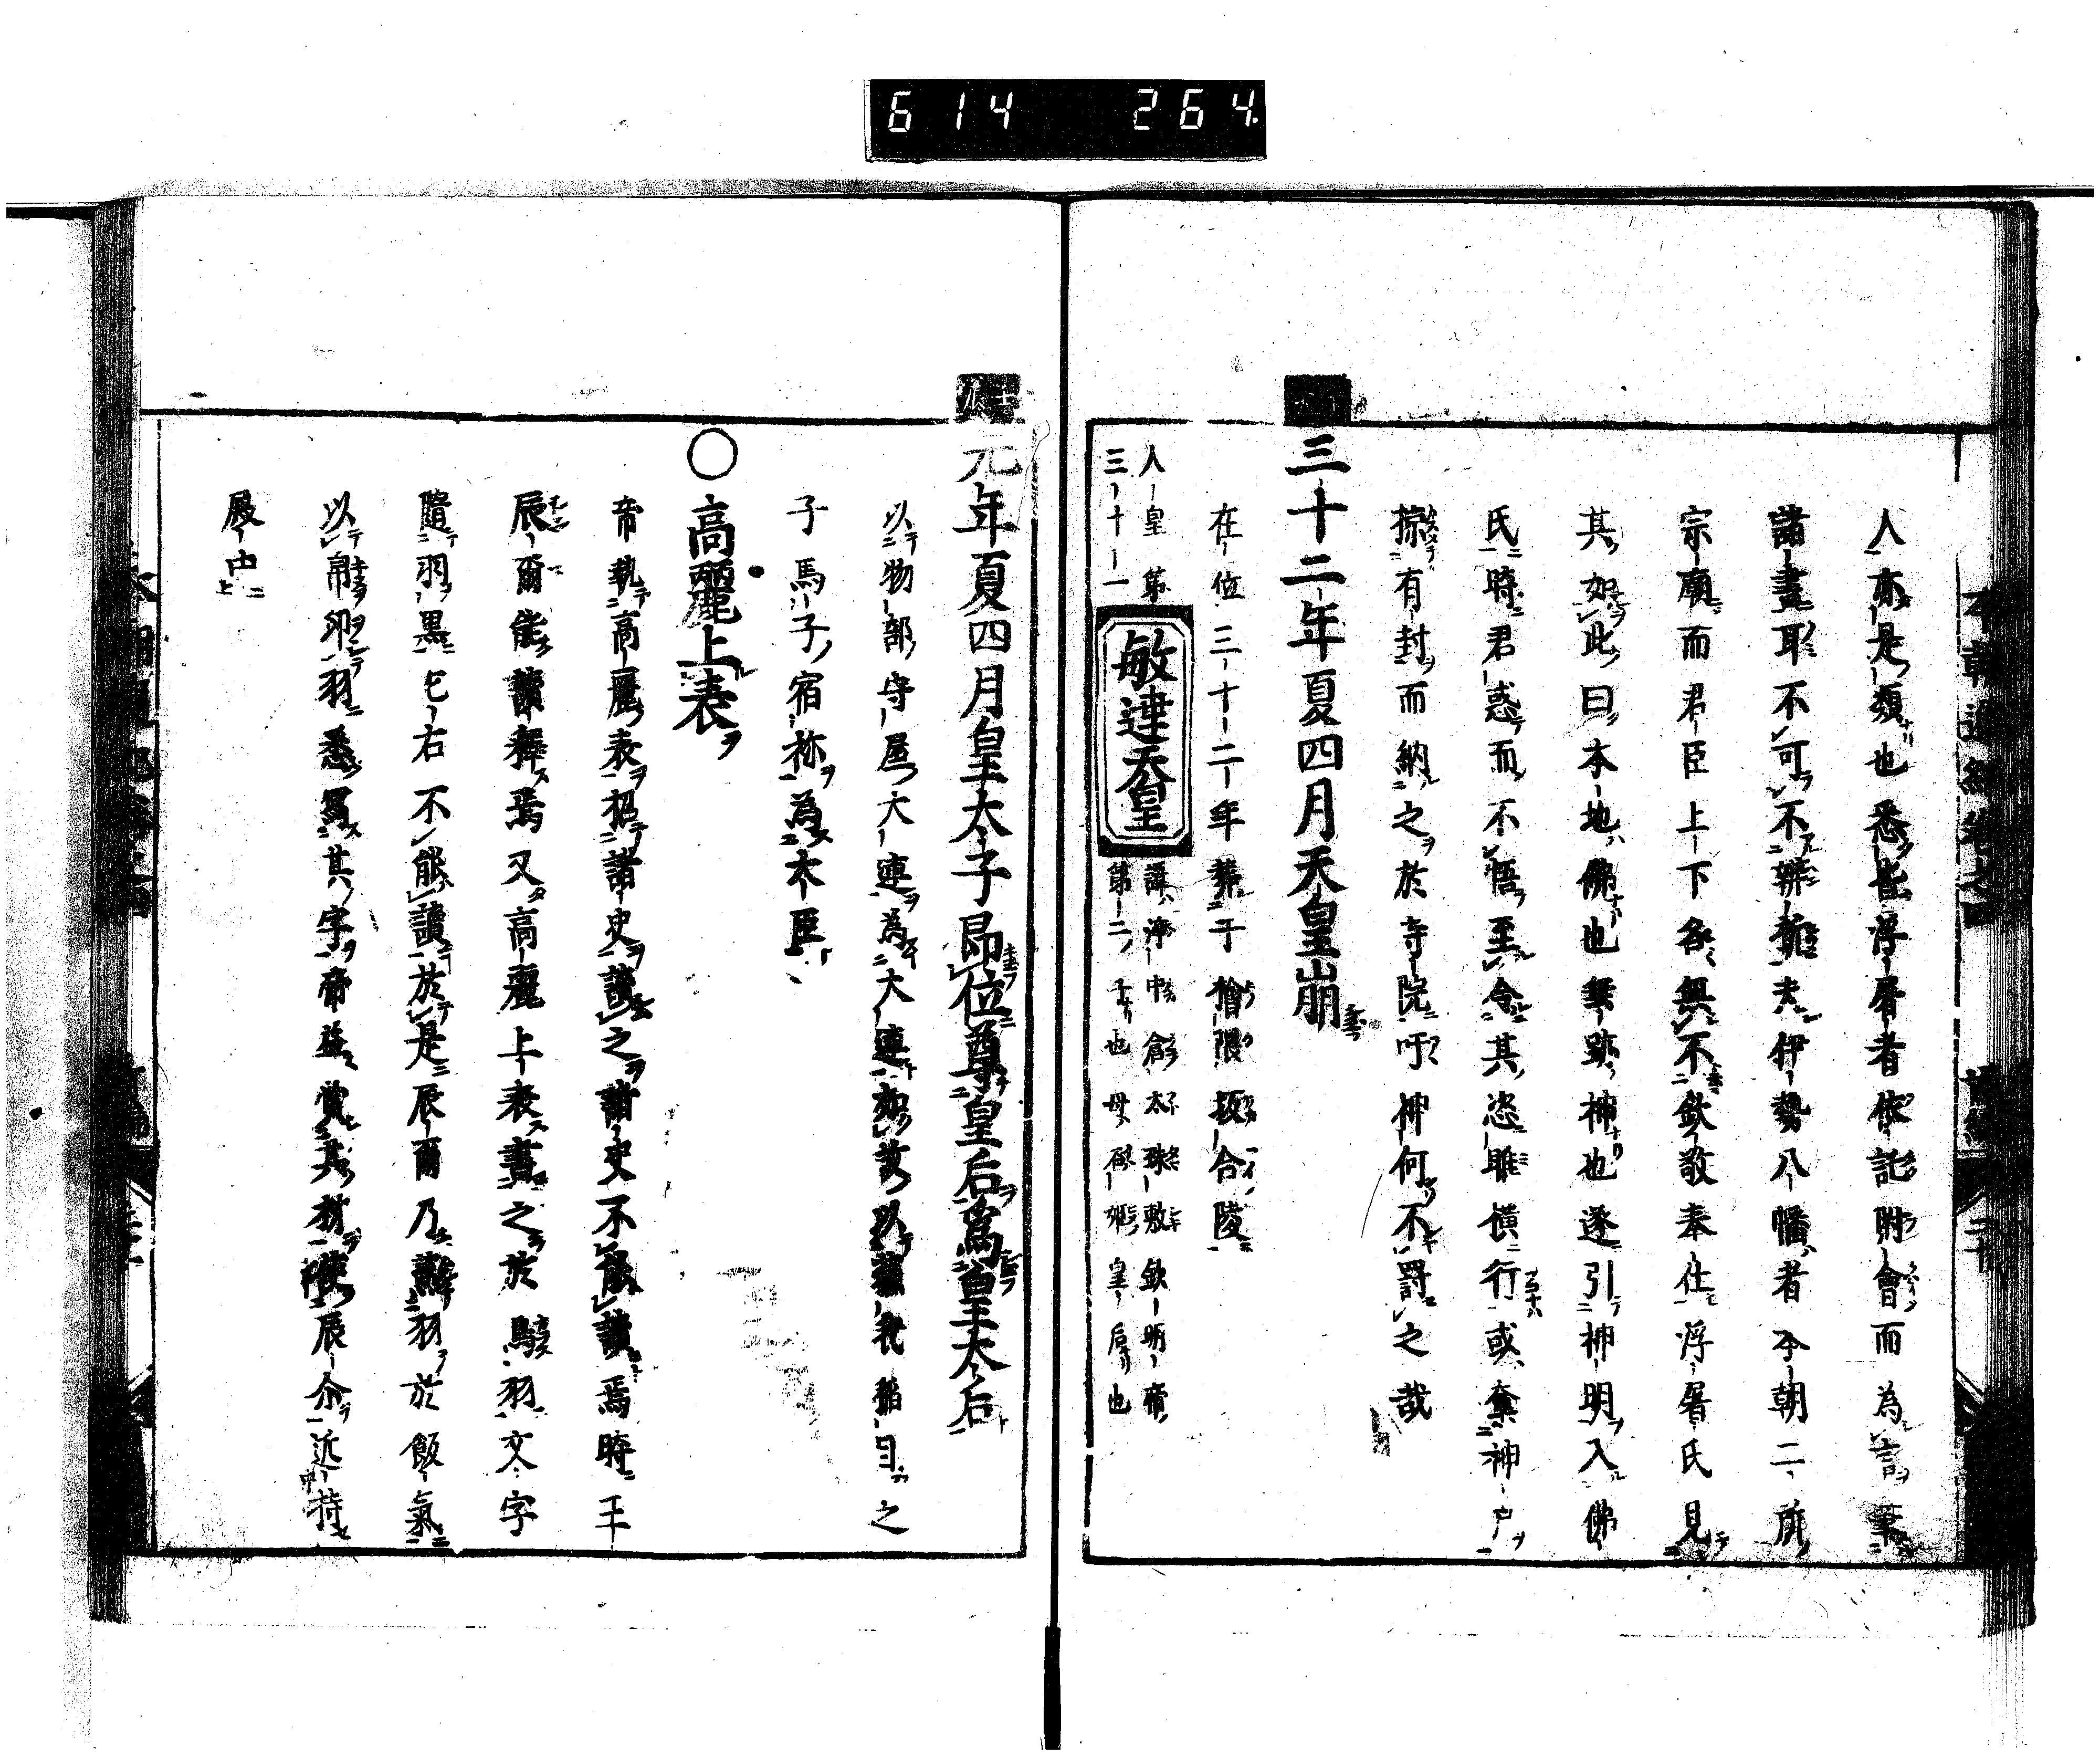 614 264
人亦是類也悉皆浮屠者依託附會而為言筆
諸書耳不可不辨拒夫伊勢八幡者本朝二所
宗廟而君臣上下各無不欽敬奉仕浮屠氏見
其如此曰本地佛也垂跡神也遂引神明入佛
氏時君惑而不悟至令其恣睢横行或奪神戸
掠有封而納之於寺院吁神何不罸之哉
三十二年夏四月天皇崩
在位三十二年葬于檜隈坂合陵
人皇第
三十一
敏達天皇
諱渟中倉太珠敷欽明帝
第二子也母石姬皇后也
元年夏四月皇太子即位尊皇后爲皇太后
以物部守屋大連為大連如故以蘇我稲目之
子馬子宿祢為大臣
○高麗上表
帝執高麗表招諸史讀之諸史不能讀焉時王
辰爾能讀釋焉又高麗上表書之於烏羽文字
隨羽黒已右不能讀於是辰爾乃蒸羽於飯氣
以帛印羽悉寫其字帝益賞其才使辰尒近侍
殿中